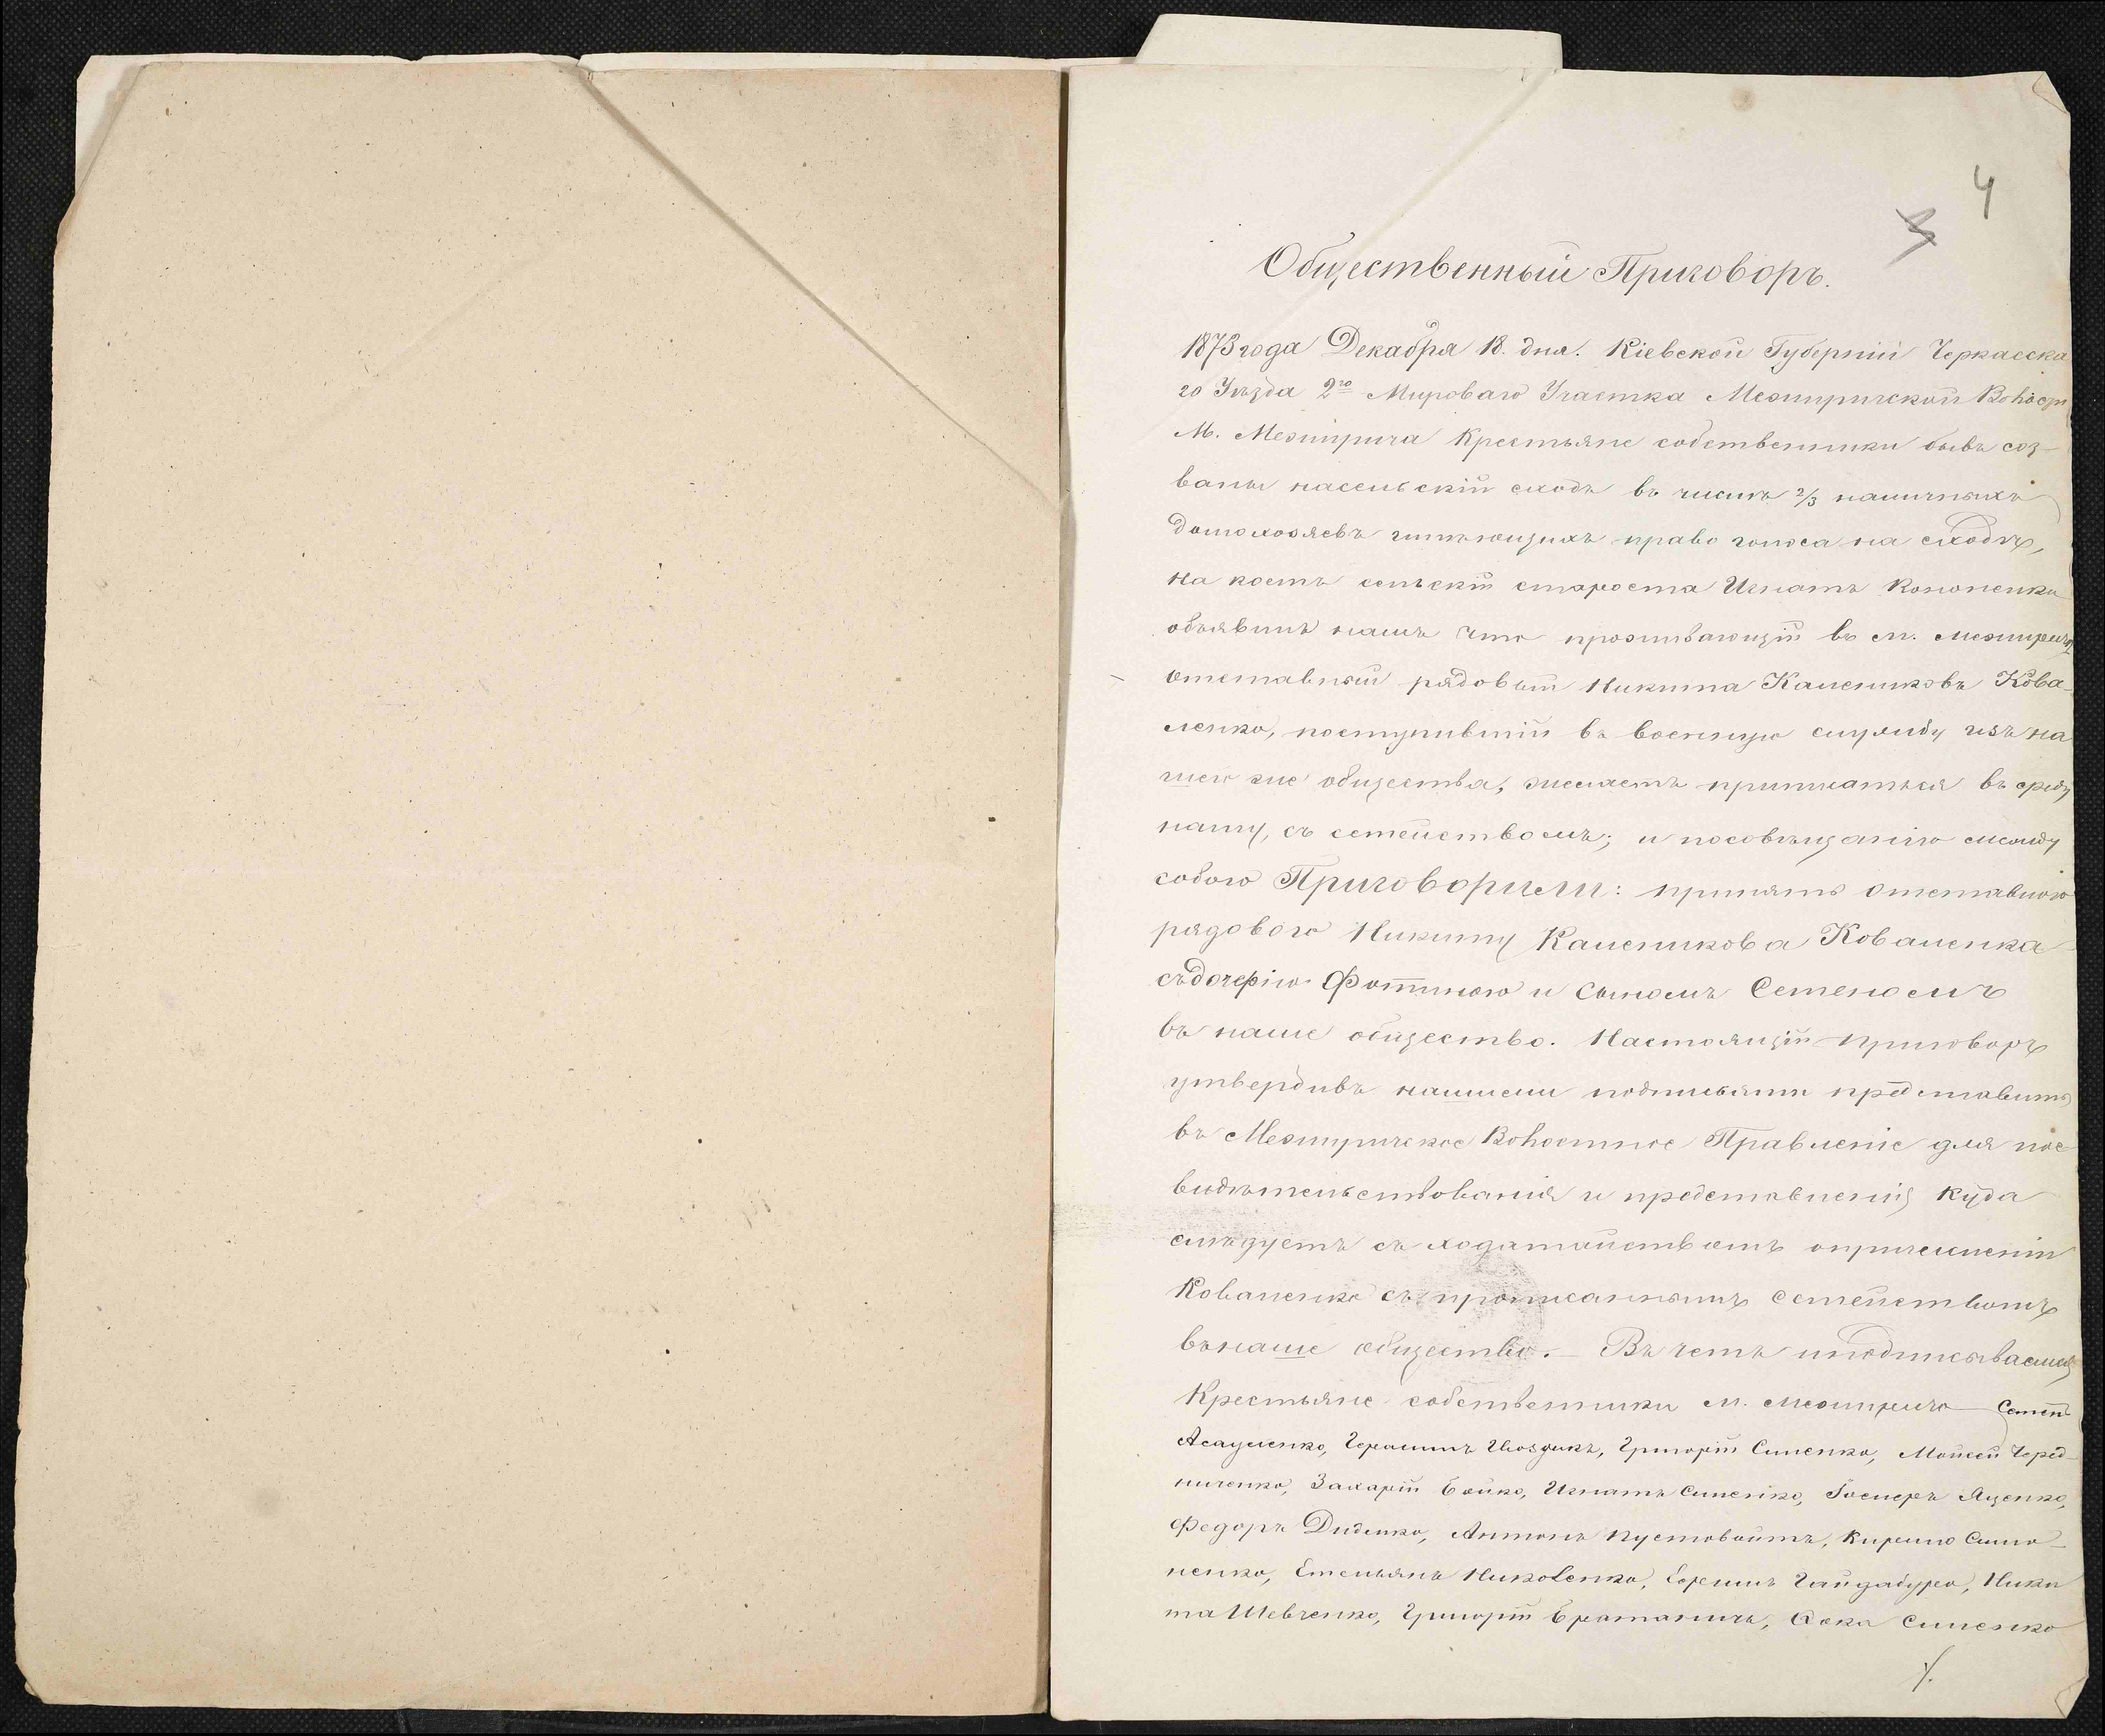 4
3
Общественный Приговоръ.
1873 года Декабря 18. дня. Кіевской Губерніи Черкасска
го Уѣзда 2го Мироваго Участка Межиричской Волост
М. Межирича Крестьяне собственники бывъ соз-
ваны насельскій сходъ въ числѣ 2/3 наличныхъ
домохозяевъ имѣющихъ право голоса на сходѣ,
на коемъ сельскій староста Игнатъ Кононенко
объявилъ намъ что проживающій въ м. Межиричѣ
отставной рядовый Никита Калениковъ Кова-
ленко, поступившій въ военную службу изъ на
шего же общества, желаетъ приписаться въ среду
нашу, съ семействомъ; и посовѣщанію между
собою Приговорили: принять отставного
рядового Никиту Каленикова Коваленка
съдочерію Фотиною и сыномъ Семеномъ
въ наше общество. Настоящій приговоръ
утвердивъ нашими подписями представить
въ Межиричское Волостное Правленіе для пос-
видѣтельствованія и представленія куда
слѣдуетъ съ ходатайствомъ опричисленіи
Коваленко съ прописаннымъ семействомъ
вънаше общество. — Въ чемъ иподписываемся
Крестьяне собственники м. Межирича Семенъ
Асауленко, Герасимъ Гвоздикъ, Григорій Синенко, Мойсей Черед
ниченко, Захарій Бойко, Игнатъ Синенко, Яценко,
Федоръ Диденко, Антонъ Пустовойтъ, Кирило Симо-
ненко, Емельянъ Николенко, Гайдабура, Ники
та Шевченко, Григорій Братаничъ, Синенко